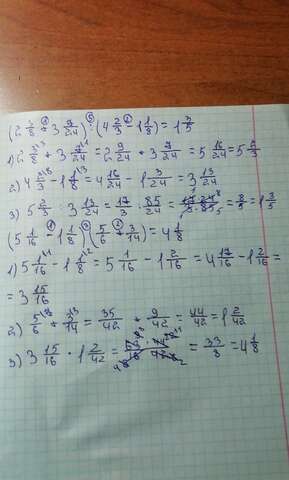 (2 3/8 + 3 7/24) : (4 2/3 - 1 1/8) = 1 3/5
1) 2 3/8 + 3 7/24 = 2 9/24 + 3 7/24 = 5 16/24 = 5 2/3
2) 4 2/3 - 1 1/8 = 4 16/24 - 1 3/24 = 3 13/24
3) 5 2/3 : 3 13/24 = 17/3 : 85/24 = 17·24/3·85 = 8/5 = 1 3/5
(5 1/16 - 1 1/8) · (5/6 + 3/14) = 4 1/8
1) 5 1/16 - 1 1/8 = 5 1/16 - 1 2/16 = 4 17/16 - 1 2/16 =
= 3 15/16
2) 5/6 + 3/14 = 35/42 + 9/42 = 44/42 = 1 2/42
3) 3 15/16 · 1 2/42 = = 33/8 = 4 1/8